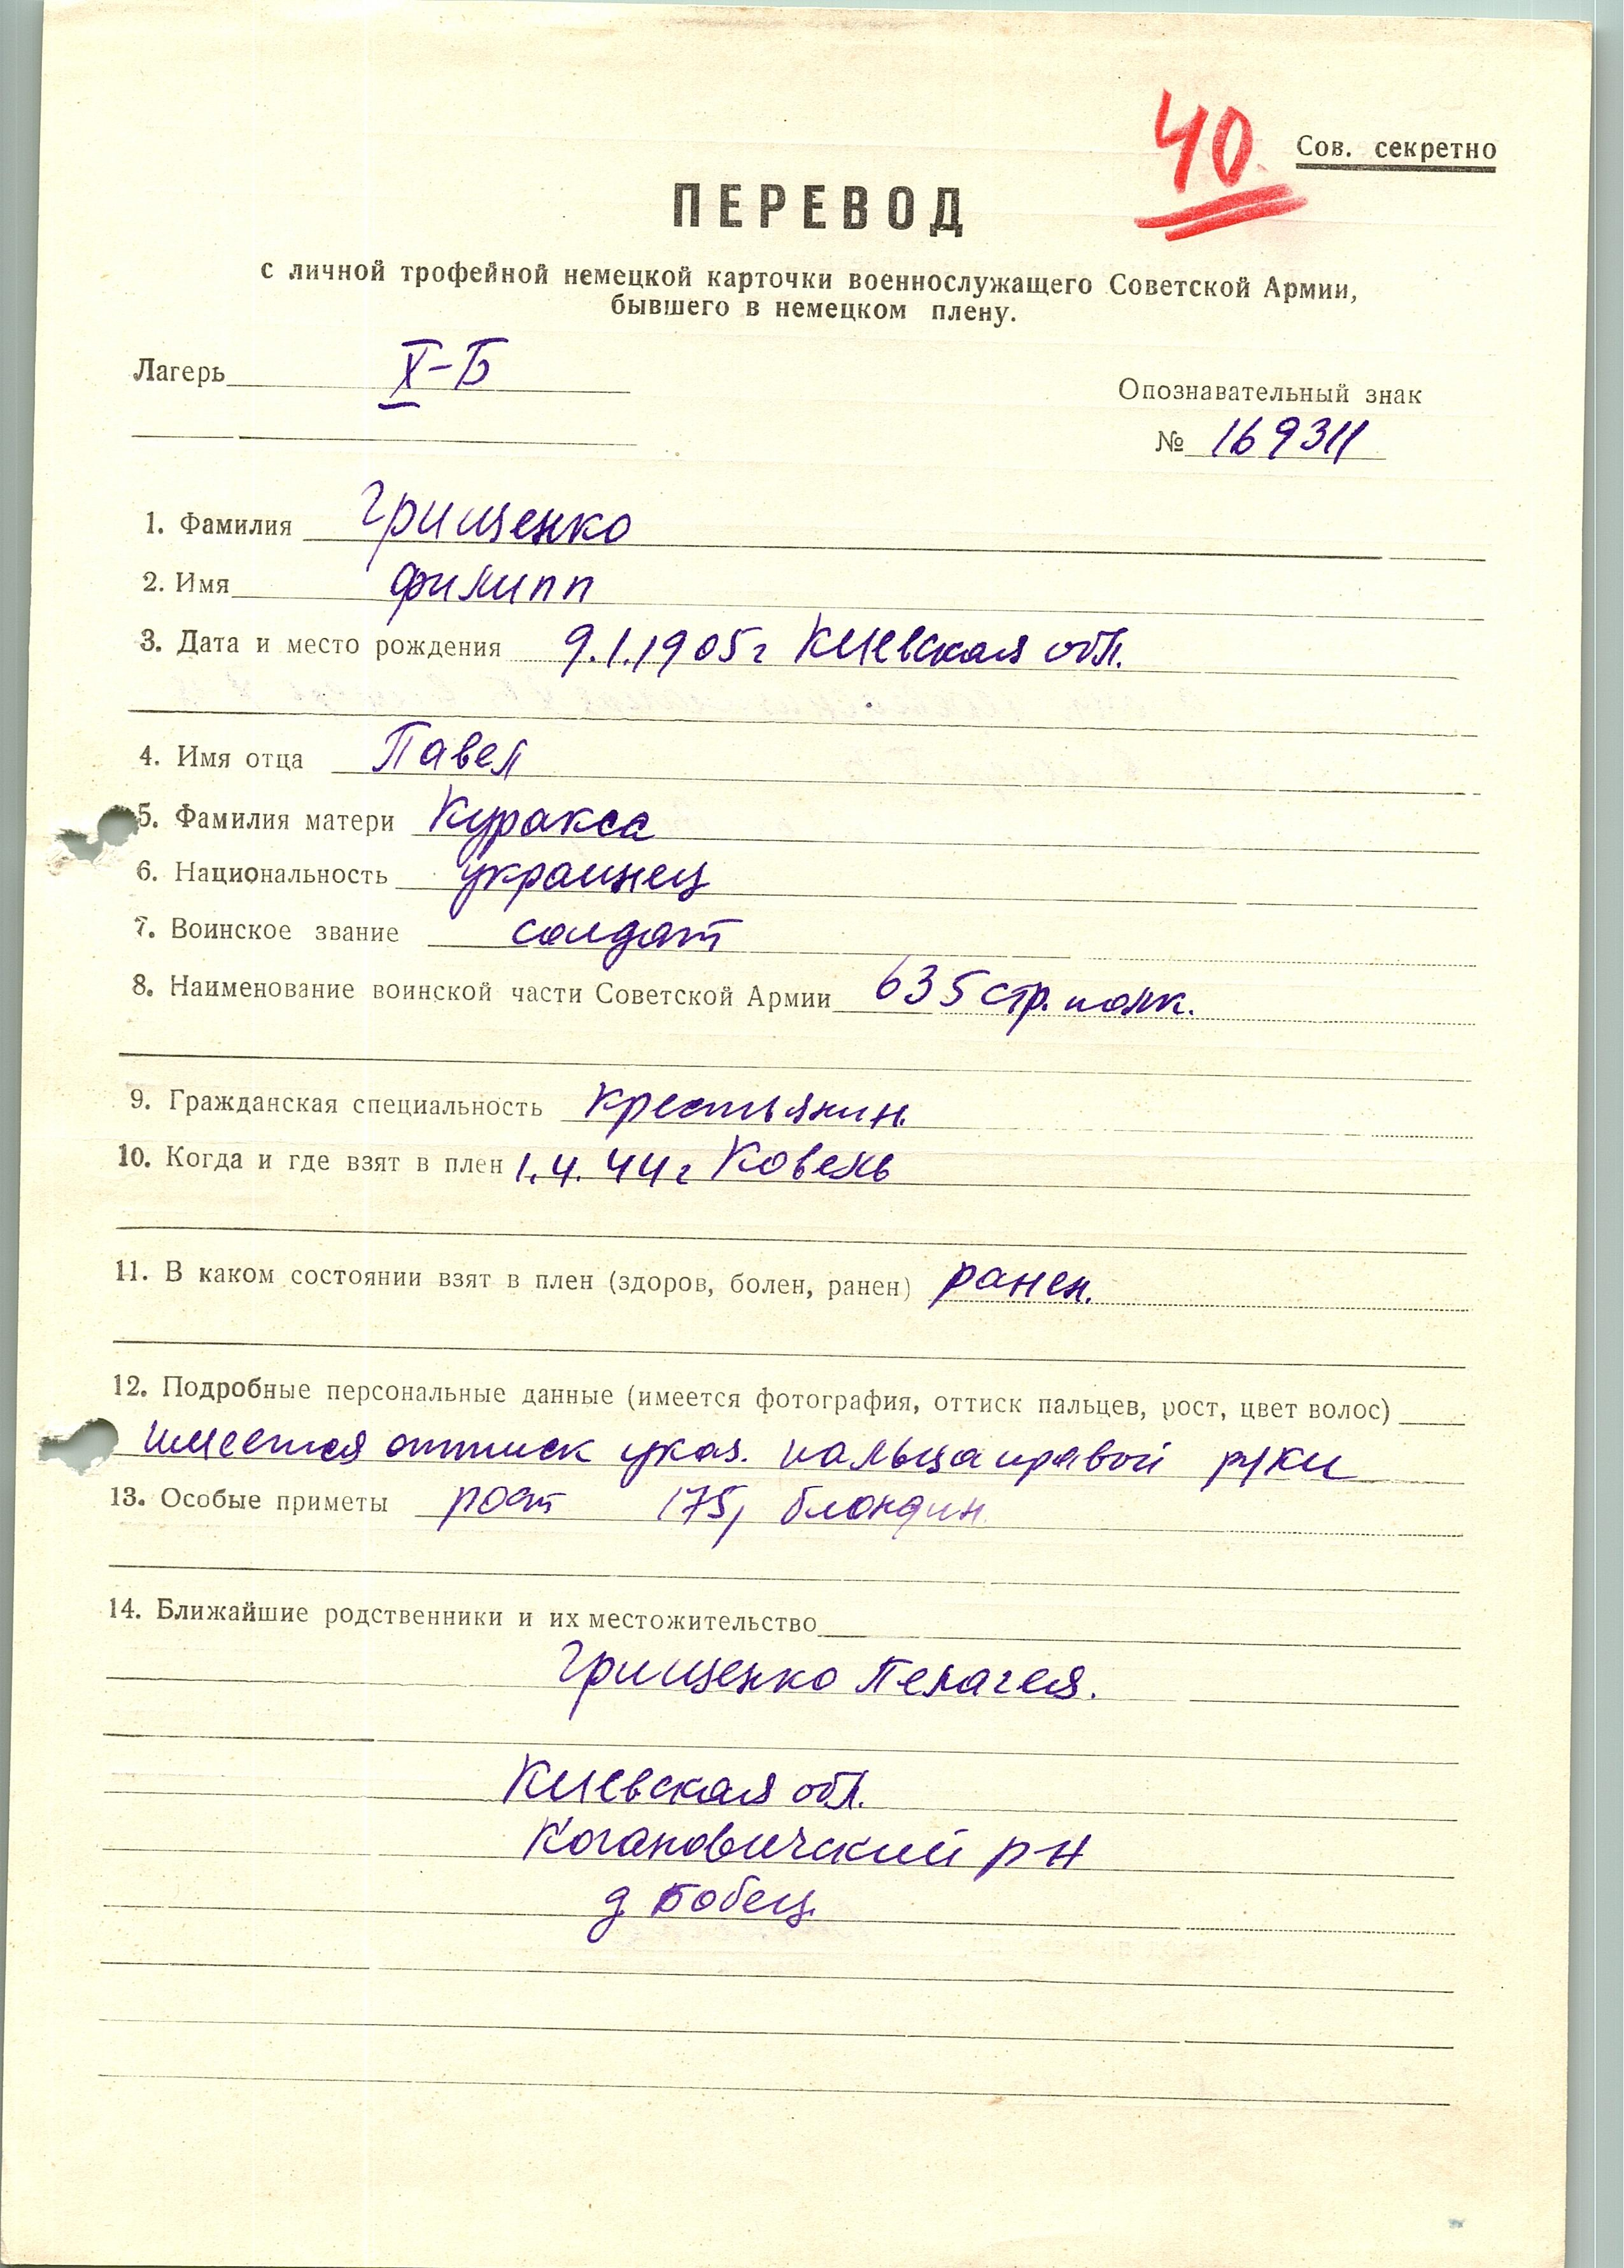 40
Сов. секретно
ПЕРЕВОД
с личной трофейной немецкой карточки военнослужащего Советской Армии,
бывшего в немецком плену.
Лагерь X-Б
Опознавательный знак
№ 169311
1. Фамилия Грищенко
2. Имя Филипп
3. Дата и место рождения 9.1.1905г Киевская обл.
4. Имя отца Павел
5. Фамилия матери Куракса
6. Национальность украинец
7. Воинское звание солдат
8. Наименование воинской части Советской Армии 635 стр. полк.
9. Гражданская специальность крестьянин.
10. Когда и где взят в плен 1.4.44г Ковель
11. В каком состоянии взят в плен (здоров, болен, ранен) ранен.
12. Подробные персональные данные (имеется фотография, оттиск пальцев, рост, цвет волос)
имеется оттиск указ. пальца правой руки
13. Особые приметы рост 175, блондин.
14. Ближайшие родственники и их местожительство
Грищенко Пелагея.
Киевская обл.
Когановичский р-н
д Бобец.